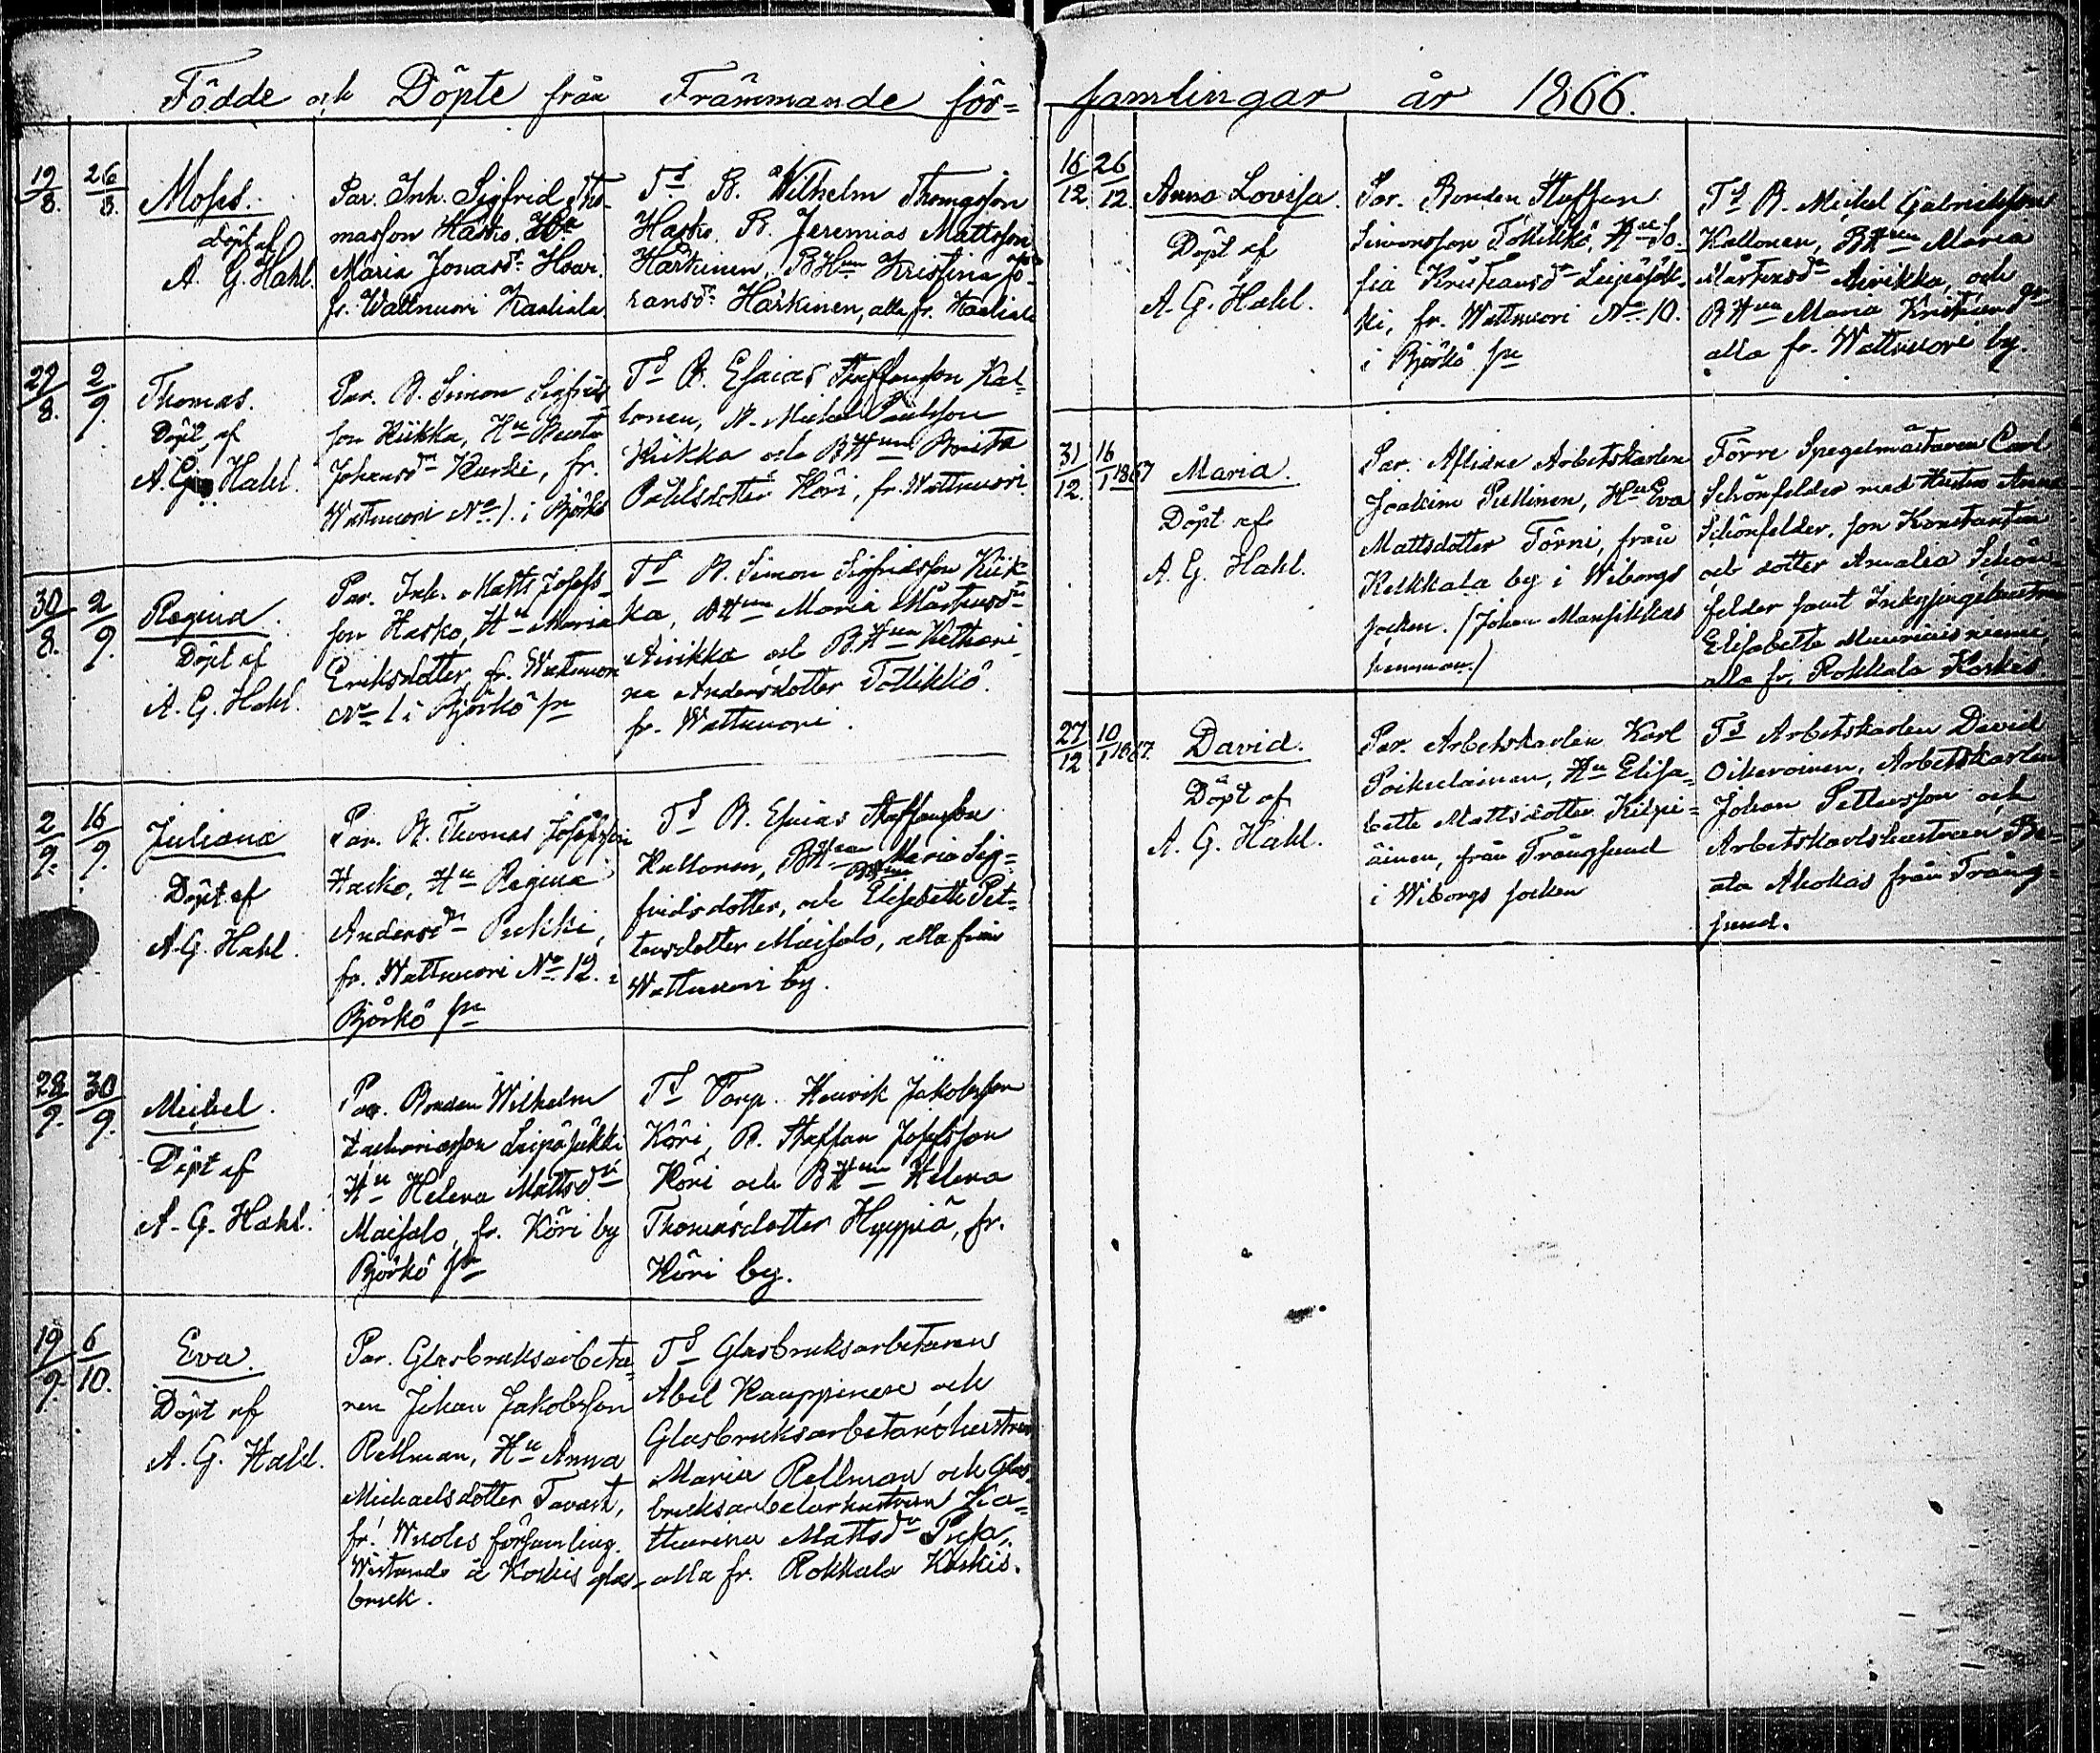 Födde och Döpte från Främmande för=
19/8. 26/8.
Moses.
döpt af
A. G. Hahl.
Par. Inh. Sigfrid Tho-
masson Hasko, Hu
Maria Jonasdr
fr. Wattnuori
Ts B. Wilhelm Thomasson
Hasko, B. Jeremias Mattsson
Härkinen, BHun Kristina Jo-
hansdr Härkinen, alla fr.
29/8. 2/9.
Thomas.
Döpt af
A. G. Hahl.
Par. B. Simon Sigfrids-
son Kiikka, Hu
Johansdr Kurki, fr.
Wattnuori No 1. i Björkö
Ts B. Esaias Staffansson Kal-
lonen, B. Mickel Paulsson
Kiikka och BHun Brita
Påhlsdotter Köri, fr. Wattnuori.
30/8. 2/9.
Regina.
Döpt af
A. G. Hahl.
Par. Inh. Matts Josefs-
son Hasko, Hu Maria
Eriksdotter, fr. Wattnuori
No 1 i Björkö sn
Ts B. Simon Sigfridsson Kiik-
ka, BHun Maria Mårtensdr
Airikka och BHun Kathari-
na Andersdotter Töllikkö.
fr. Wattnuori.
2/9. 16/9.
Juliana
Döpt af
A. G. Hahl.
Par. B. Thomas Josefsson
Hasko, Hu Regina
Andersdr Pukki,
fr. Wattnuori No 12. i
Björkö sn
Ts B. Esaias Staffansson
Kallonen, BHun Maria Sig=
BHun
fridsdotter, och Elisabeth Pet=
tersdotter Maisalo, alla från
Wattnuori by.
28/9. 30/9.
Mickel.
Döpt af
A. G. Hahl.
Par. Bonden Wilhelm
Zachariasson Leipäjukki
Hu Helena Mattsdr
Maisalo, fr. Köri by
Björkö sn
Ts Torp. Henrik Jakobsson
Köri, B. Staffan Josefsson
Köri och BHun Helena
Thomasdotter Hyyppiä, fr.
Köri by.
19/9. 6/10.
Eva.
Döpt af
A. G. Hahl.
Par. Glasbruksarbeta=
ren Johan Jakobsson
Rellman, Hu Anna
Michaelsdotter Tavast,
fr. Nuoles församling.
Wistande å Koskis glas-
bruk.
Ts Glasbruksarbetaren
Abel Kauppinen och
Glasbruksarbetarehustrun
Maria Rellman och Glas-
bruksarbetarhustrun Ka=
tharina Mattsdr
alla fr. Rokkala Koskis.
samlingar år 1866.
16/12. 26/12.
Anna Lovisa.
Döpt af
A. G. Hahl.
Par. Bonden Staffan
Simonsson Töllikkö, Hu So-
fia Kristiansdr Leipäjuk-
ki, fr. Wattnuori No 10.
i Björkö sn
Ts B. Mickel Gabrielsson
Kallonen, BHun Maria
Mårtensdr Airikka, och
BHun Maria Kristiansdr
alla fr. Wattnuori by.
31/12. 16/1 1867
Maria.
Döpt af
A. G. Hahl.
Par. Aflidne Arbetskarlen
Joakim Pullinen, Hu Eva
Mattsdotter Törni, från
Kelkkala by i Wiborgs
socken. (Johan Mansikkas
hemman.)
Förre Spegelmästaren Carl
Schönfelder med Hustru Anna
Schönfelder, son Konstantin
och dotter Amalia Schön-
felder samt
Elisabetta
alla fr. Rokkala Koskis.
27/12 10/1 1867.
David.
Döpt af
A. G. Hahl.
Par. Arbetskarlen Karl
Poikelainen, Hu Elisa=
betta Mattsdotter Kilpi=
äinen, från Trångsund
i Wiborgs socken
Ts Arbetskarlen David
Oikarainen, Arbetskarlen
Johan Pettersson och
Arbetskarlshustrun Be-
ata Ahokas från Trång=
sund.